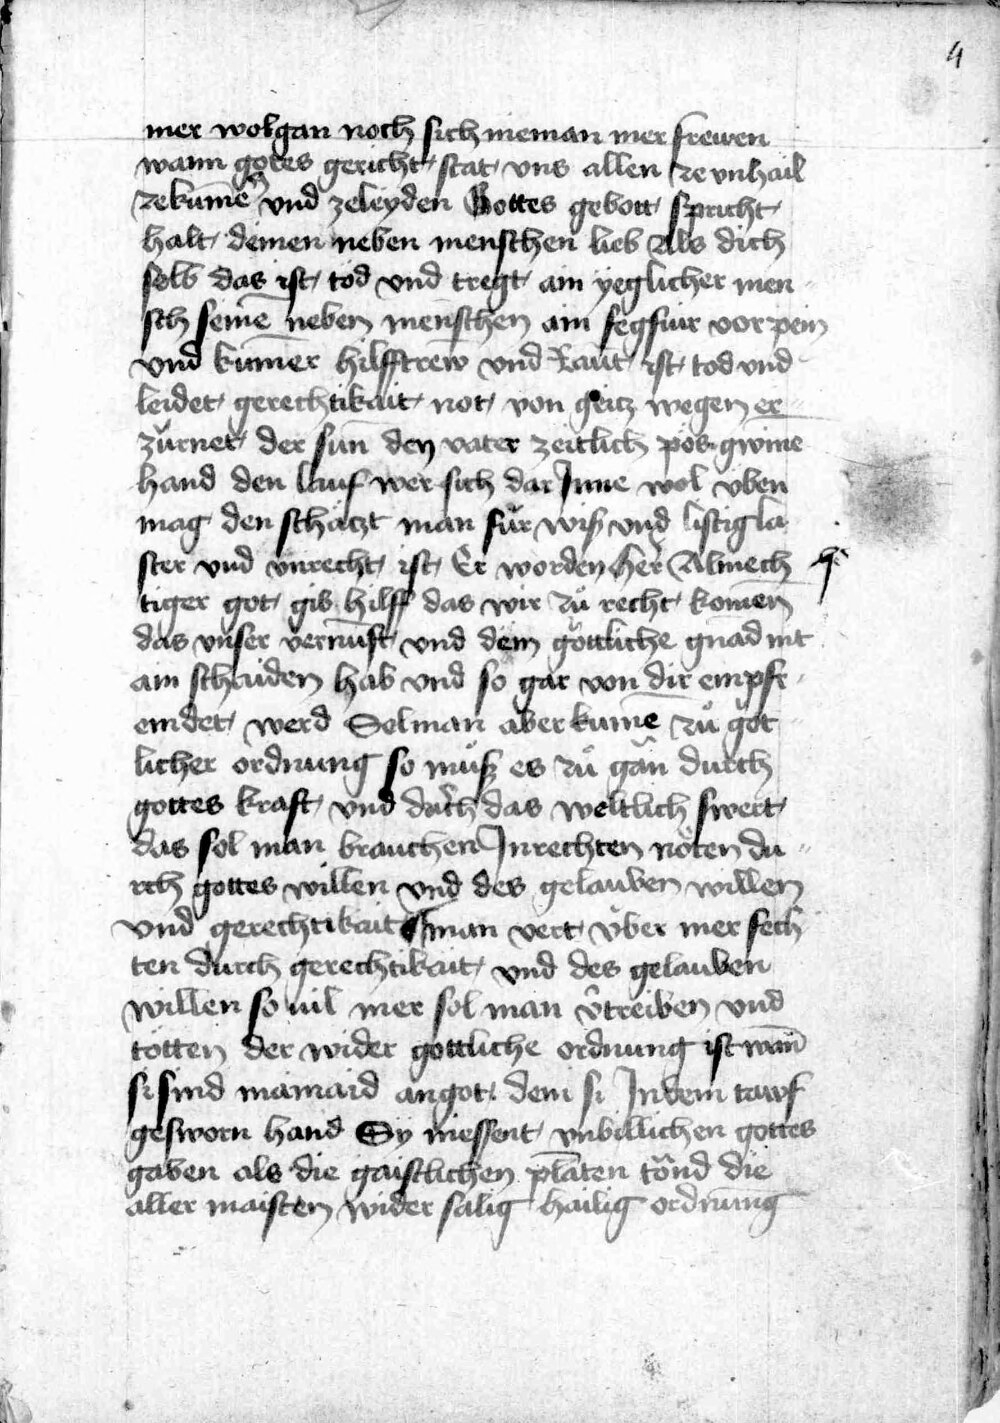 4
mer wolgan noch sich nieman mer frewen
wann gotes gericht stat vns allen ze vnhail
zekumē vnd zeleyden Gottes gebott spricht
halt deinen neben menschen lieb Als dich
selb das ist tod vnd tregt ain yeglicher men
sch seinē neben menschen ain fegfiur vor pein
vnd kumer hilff trew vnd Raut ist tod vnd
leidet gerechtikait not von geitz wegen er
zürnet der sun den vater zeitlich pös gwine
hand den lauf wer sich dar Jnne wol vben
mag den schätzt man für wiß vnd listig la
ster vnd vnrecht ist Er worden her Almech
tiger got gib hilff das wir zů recht komen
das vnser vernunft vnd dein göttliche gnad nit
ain schaiden hab vnd so gar von dir empfr
emdet werd Sol man aber kumē zů göt
licher ordnung so můß es zů gân durch
gottes kraft vnd das weltlich swert
das sol man brauchen Jn rechten nöten du
rch gottes willen vnd des gelauben willen
vnd gerechtikait man vert v̈ber mer fech
ten durch gerechtikait vnd des gelauben
willen so uil mer sol man v̂treiben vnd
tötten der wider gottliche ordnung ist wañ
si sind mainaid an got dem si Jn dem tawf
gesworn hand Sy niessent vnbillichen gottes
gaben als die gaistlichen plāten tönd die
aller maisten wider sälig hailig ordnung